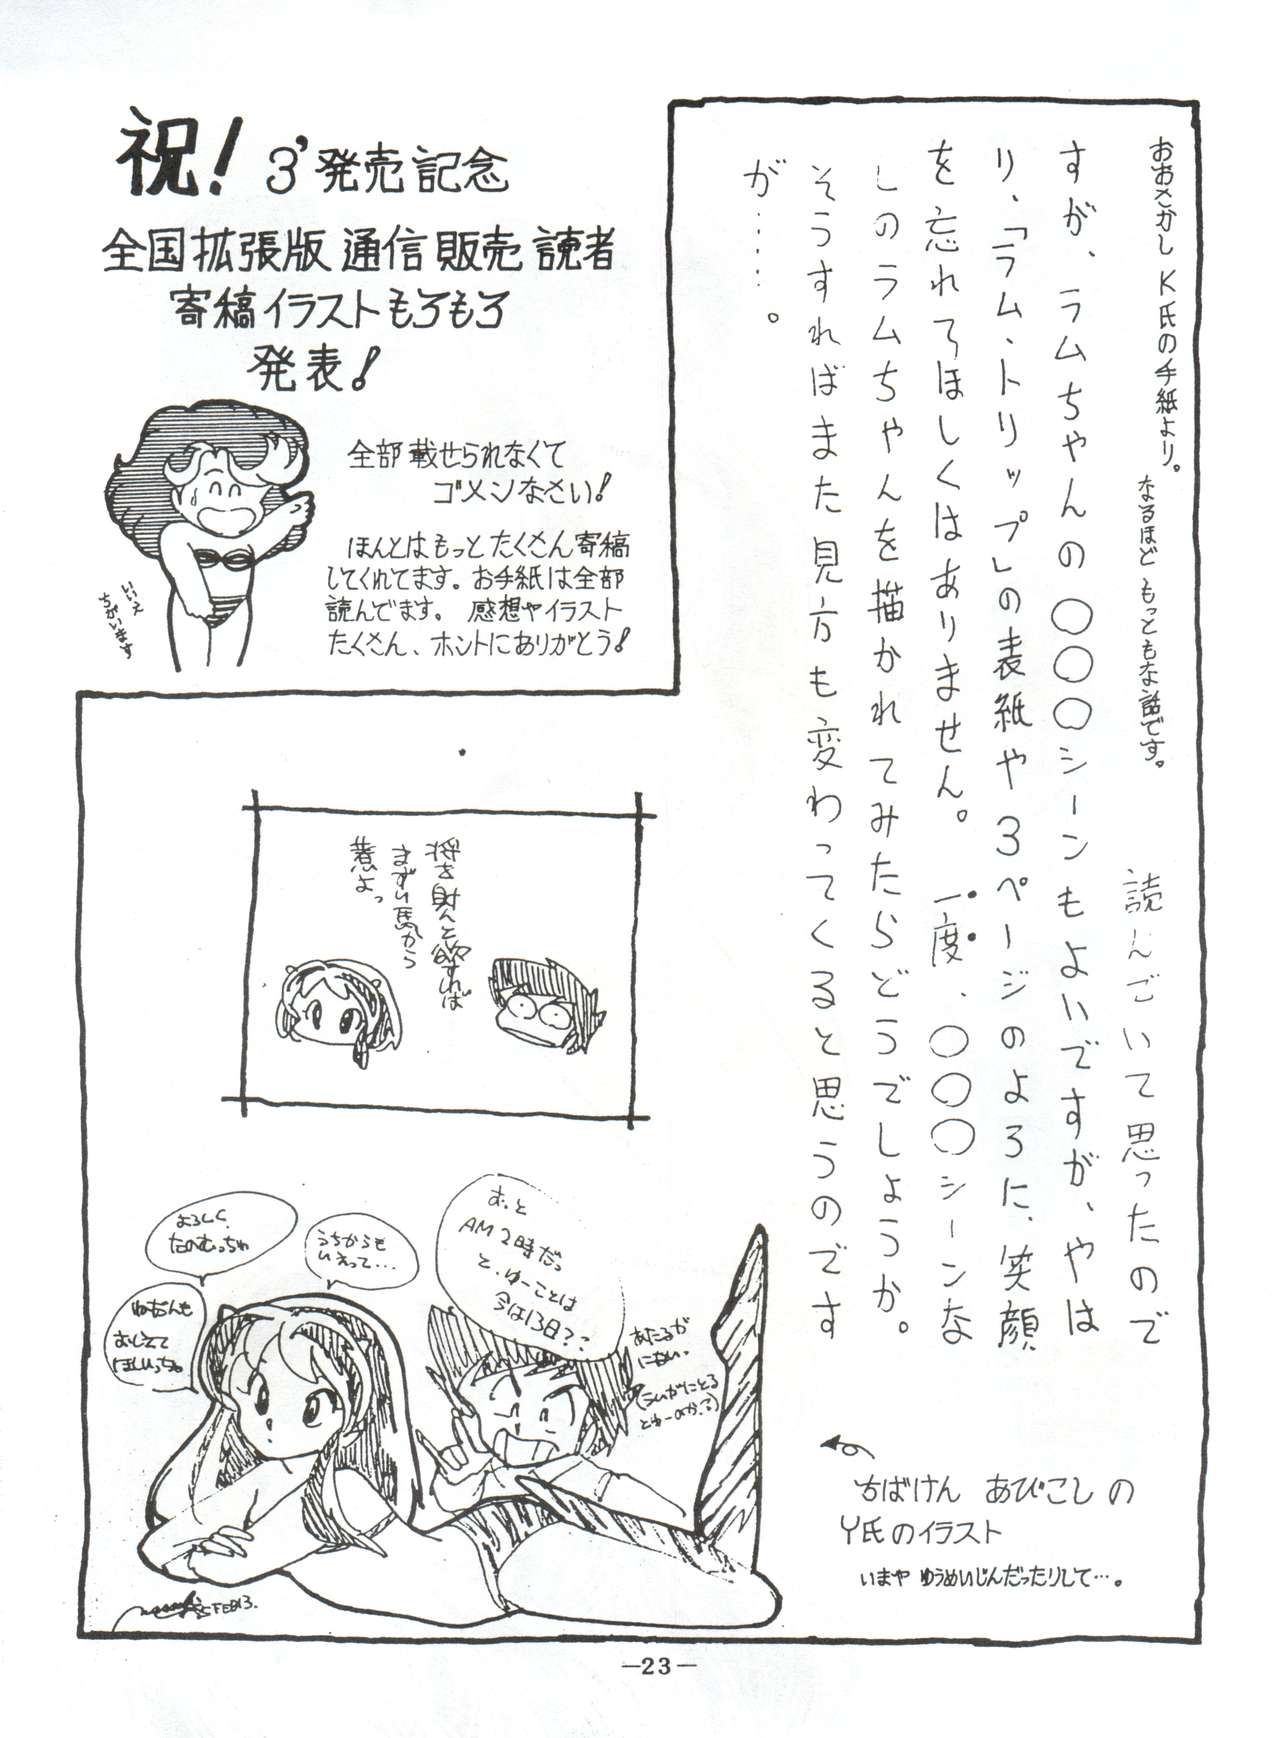 祝! 3'発売記念
全国拡張版通信販売読者
寄稿イラストもろもろ
発表!
全部載せられなくて
ゴメンなさい!
ほんとはもっとたくさん寄稿
してくれてます。お手紙は全部
読んでます。 感想やイラスト
たくさん、ホントにありがとう!
いいえ
ちがいます
おおさかし K氏の手紙より。
なるほど もっともな話です。
読んでいて思ったので
すが、ラムちゃんの〇〇〇シーンもよいですが、やは
り、「ラム・トリップ」の表紙や3ページのように、笑顔
を忘れてほしくはありません。 一度、〇〇〇シーンな
しのラムちゃんを描かれてみたらどうでしょうか。
そうすればまた見方も変わってくると思うのです
が……。
将を射んと欲すれば
まずい馬から
煮よっ
むっと
AM2時だっ
と、ゆーことは
今は13日??
うちからも
いえって…
よろしく
たのむっちゃ
おしえて
ほしいっちゃ
あたるが
にない..
ちばけん あびこしの
Y氏のイラスト
いまや ゆうめいじんだったりして…。
FEB13.
—23—